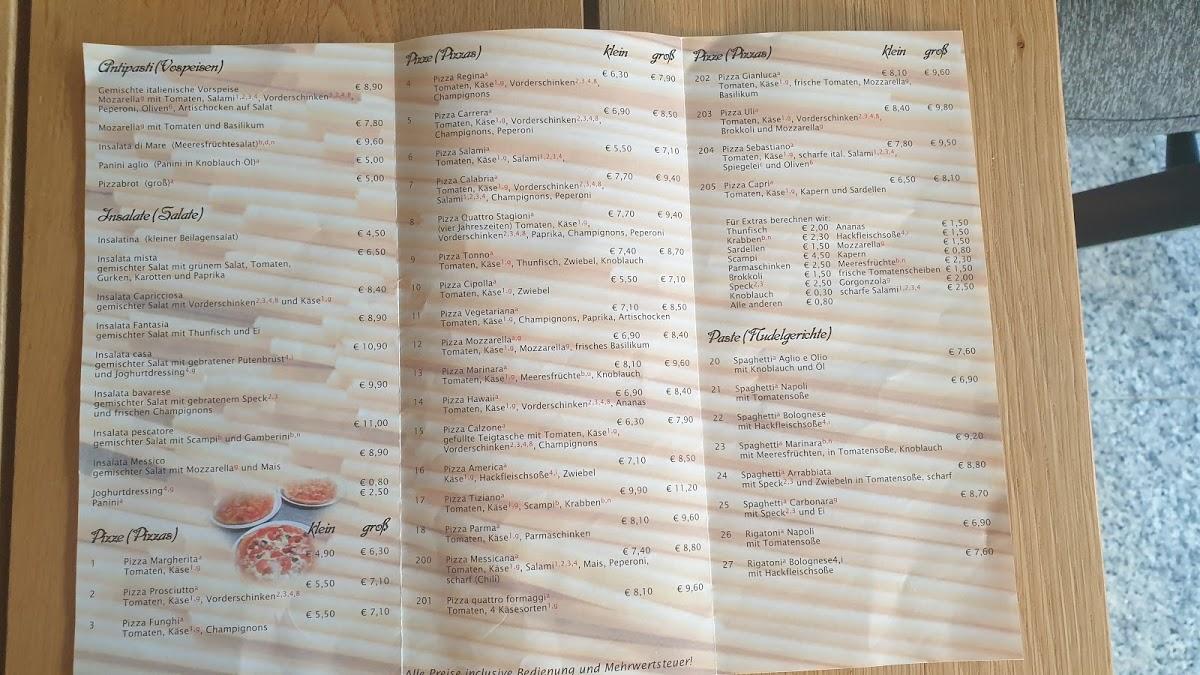 Antipasti (Vospeisen)
Gemischte italienische Vorspeise € 8,90
Mozarella⁹ mit Tomaten, Salami¹,²,³,⁴, Vorderschinken²,³,⁴,⁸,
Peperoni, Oliven⁶, Artischocken auf Salat
Mozarella⁹ mit Tomaten und Basilikum € 7,80
Insalata di Mare (Meeresfrüchtesalat)b,d,n € 9,60
Panini aglio (Panini in Knoblauch-Öl)a € 5,00
Pizzabrot (groß)a € 5,00
Insalate (Salate)
Insalatina (kleiner Beilagensalat) € 4,50
Insalata mista € 6,50
gemischter Salat mit grünem Salat, Tomaten,
Gurken, Karotten und Paprika
Insalata Capricciosa € 8,40
gemischter Salat mit Vorderschinken2,3,4,8 und Käse1,g
Insalata Fantasia € 8,90
gemischter Salat mit Thunfisch und Ei
Insalata casa € 10,90
gemischter Salat mit gebratener Putenbrust4,i
und Joghurtdressing4,g
Insalata bavarese € 9,90
gemischter Salat mit gebratenem Speck2,3
und frischen Champignons
Insalata pescatore € 11,00
gemischter Salat mit Scampib und Gamberinib,n
Insalata Messico € 8,90
gemischter Salat mit Mozzarellag und Mais
Joghurtdressing4,g € 0,80
Paninia € 2,50
Pizze (Pizzas) klein groß
1 Pizza Margheritaa € 4,90 € 6,30
Tomaten, Käse1,g
2 Pizza Prosciuttoa € 5,50 € 7,10
Tomaten, Käse1,g, Vorderschinken2,3,4,8
3 Pizza Funghia € 5,50 € 7,10
Tomaten, Käse1,g, Champignons
Pizze (Pizzas) klein groß
4 Pizza Reginaa € 6,30 € 7,90
Tomaten, Käse1,g, Vorderschinken2,3,4,8,
Champignons
5 Pizza Carreraa € 6,90 € 8,50
Tomaten, Käse1,g, Vorderschinken2,3,4,8,
Champignons, Peperoni
6 Pizza Salamia € 5,50 € 7,10
Tomaten, Käse1,g, Salami1,2,3,4,
7 Pizza Calabriaa € 7,70 € 9,40
Tomaten, Käse1,g, Vorderschinken2,3,4,8,
Salami1,2,3,4, Champignons, Peperoni
8 Pizza Quattro Stagionia € 7,70 € 9,40
(vier Jahreszeiten) Tomaten, Käse1,g,
Vorderschinken2,3,4,8, Paprika, Champignons, Peperoni
9 Pizza Tonnoa € 7,40 € 8,70
Tomaten, Käse1,g, Thunfisch, Zwiebel, Knoblauch
10 Pizza Cipollaa € 5,50 € 7,10
Tomaten, Käse1,g, Zwiebel
11 Pizza Vegetarianaa € 7,10 € 8,50
Tomaten, Käse1,g, Champignons, Paprika, Artischocken
12 Pizza Mozzarellaa,g € 6,90 € 8,40
Tomaten, Käse1,g, Mozzarellag, frisches Basilikum
13 Pizza Marinaraa € 8,10 € 9,60
Tomaten, Käse1,g, Meeresfrüchteb,n, Knoblauch
14 Pizza Hawaiia € 6,90 € 8,40
Tomaten, Käse1,g, Vorderschinken2,3,4,8, Ananas
15 Pizza Calzonea € 6,30 € 7,90
gefüllte Teigtasche mit Tomaten, Käse1,g,
Vorderschinken2,3,4,8, Champignons
16 Pizza Americaa € 7,10 € 8,50
Käse1,g, Hackfleischsoße4,i, Zwiebel
17 Pizza Tizianoa € 9,90 € 11,20
Tomaten, Käse1,g, Scampib, Krabbenb,n
18 Pizza Parmaa € 8,10 € 9,60
Tomaten, Käse1,g, Parmaschinken
200 Pizza Messicanaa € 7,40 € 8,80
Tomaten, Käse1,g, Salami1,2,3,4, Mais, Peperoni,
scharf (Chili)
201 Pizza quattro formaggia € 8,10 € 9,60
Tomaten, 4 Käsesorten1,g
Alle Preise inclusive Bedienung und Mehrwertsteuer!
Pizze (Pizzas) klein groß
202 Pizza Gianlucaa € 8,10 € 9,60
Tomaten, Käse1,g, frische Tomaten, Mozzarellag,
Basilikum
203 Pizza Ulia € 8,40 € 9,80
Tomaten, Käse1,g, Vorderschinken2,3,4,8,
Brokkoli und Mozzarellag
204 Pizza Sebastianoa € 7,80 € 9,50
Tomaten, Käse1,g, scharfe ital. Salami1,2,3,4,
Spiegeleic und Oliven6
205 Pizza Capria € 6,50 € 8,10
Tomaten, Käse1,g, Kapern und Sardellen
Für Extras berechnen wir:
Thunfisch € 2,00 Ananas € 1,50
Krabbenb,n € 2,30 Hackfleischsoße4,i € 1,50
Sardellen € 1,50 Mozzarellag € 1,50
Scampi € 4,50 Kapern € 0,80
Parmaschinken € 2,50 Meeresfrüchteb,n € 2,30
Brokkoli € 1,50 frische Tomatenscheiben € 1,50
Speck2,3 € 2,50 Gorgonzolag € 2,00
Knoblauch € 0,30 scharfe Salami1,2,3,4 € 2,50
Alle anderen € 0,80
Paste (Nudelgerichte)
20 Spaghettia Aglio e Olio € 7,60
mit Knoblauch und Öl
21 Spaghettia Napoli € 6,90
mit Tomatensoße
22 Spaghettia Bolognese
mit Hackfleischsoße4,i
23 Spaghettia Marinarab,n € 9,20
mit Meeresfrüchten, in Tomatensoße, Knoblauch
24 Spaghettia Arrabbiata € 8,80
mit Speck2,3 und Zwiebeln in Tomatensoße, scharf
25 Spaghettia Carbonarag € 8,70
mit Speck2,3 und Ei
26 Rigatonia Napoli € 6,90
mit Tomatensoße
27 Rigatonia Bolognese4,i € 7,60
mit Hackfleischsoße